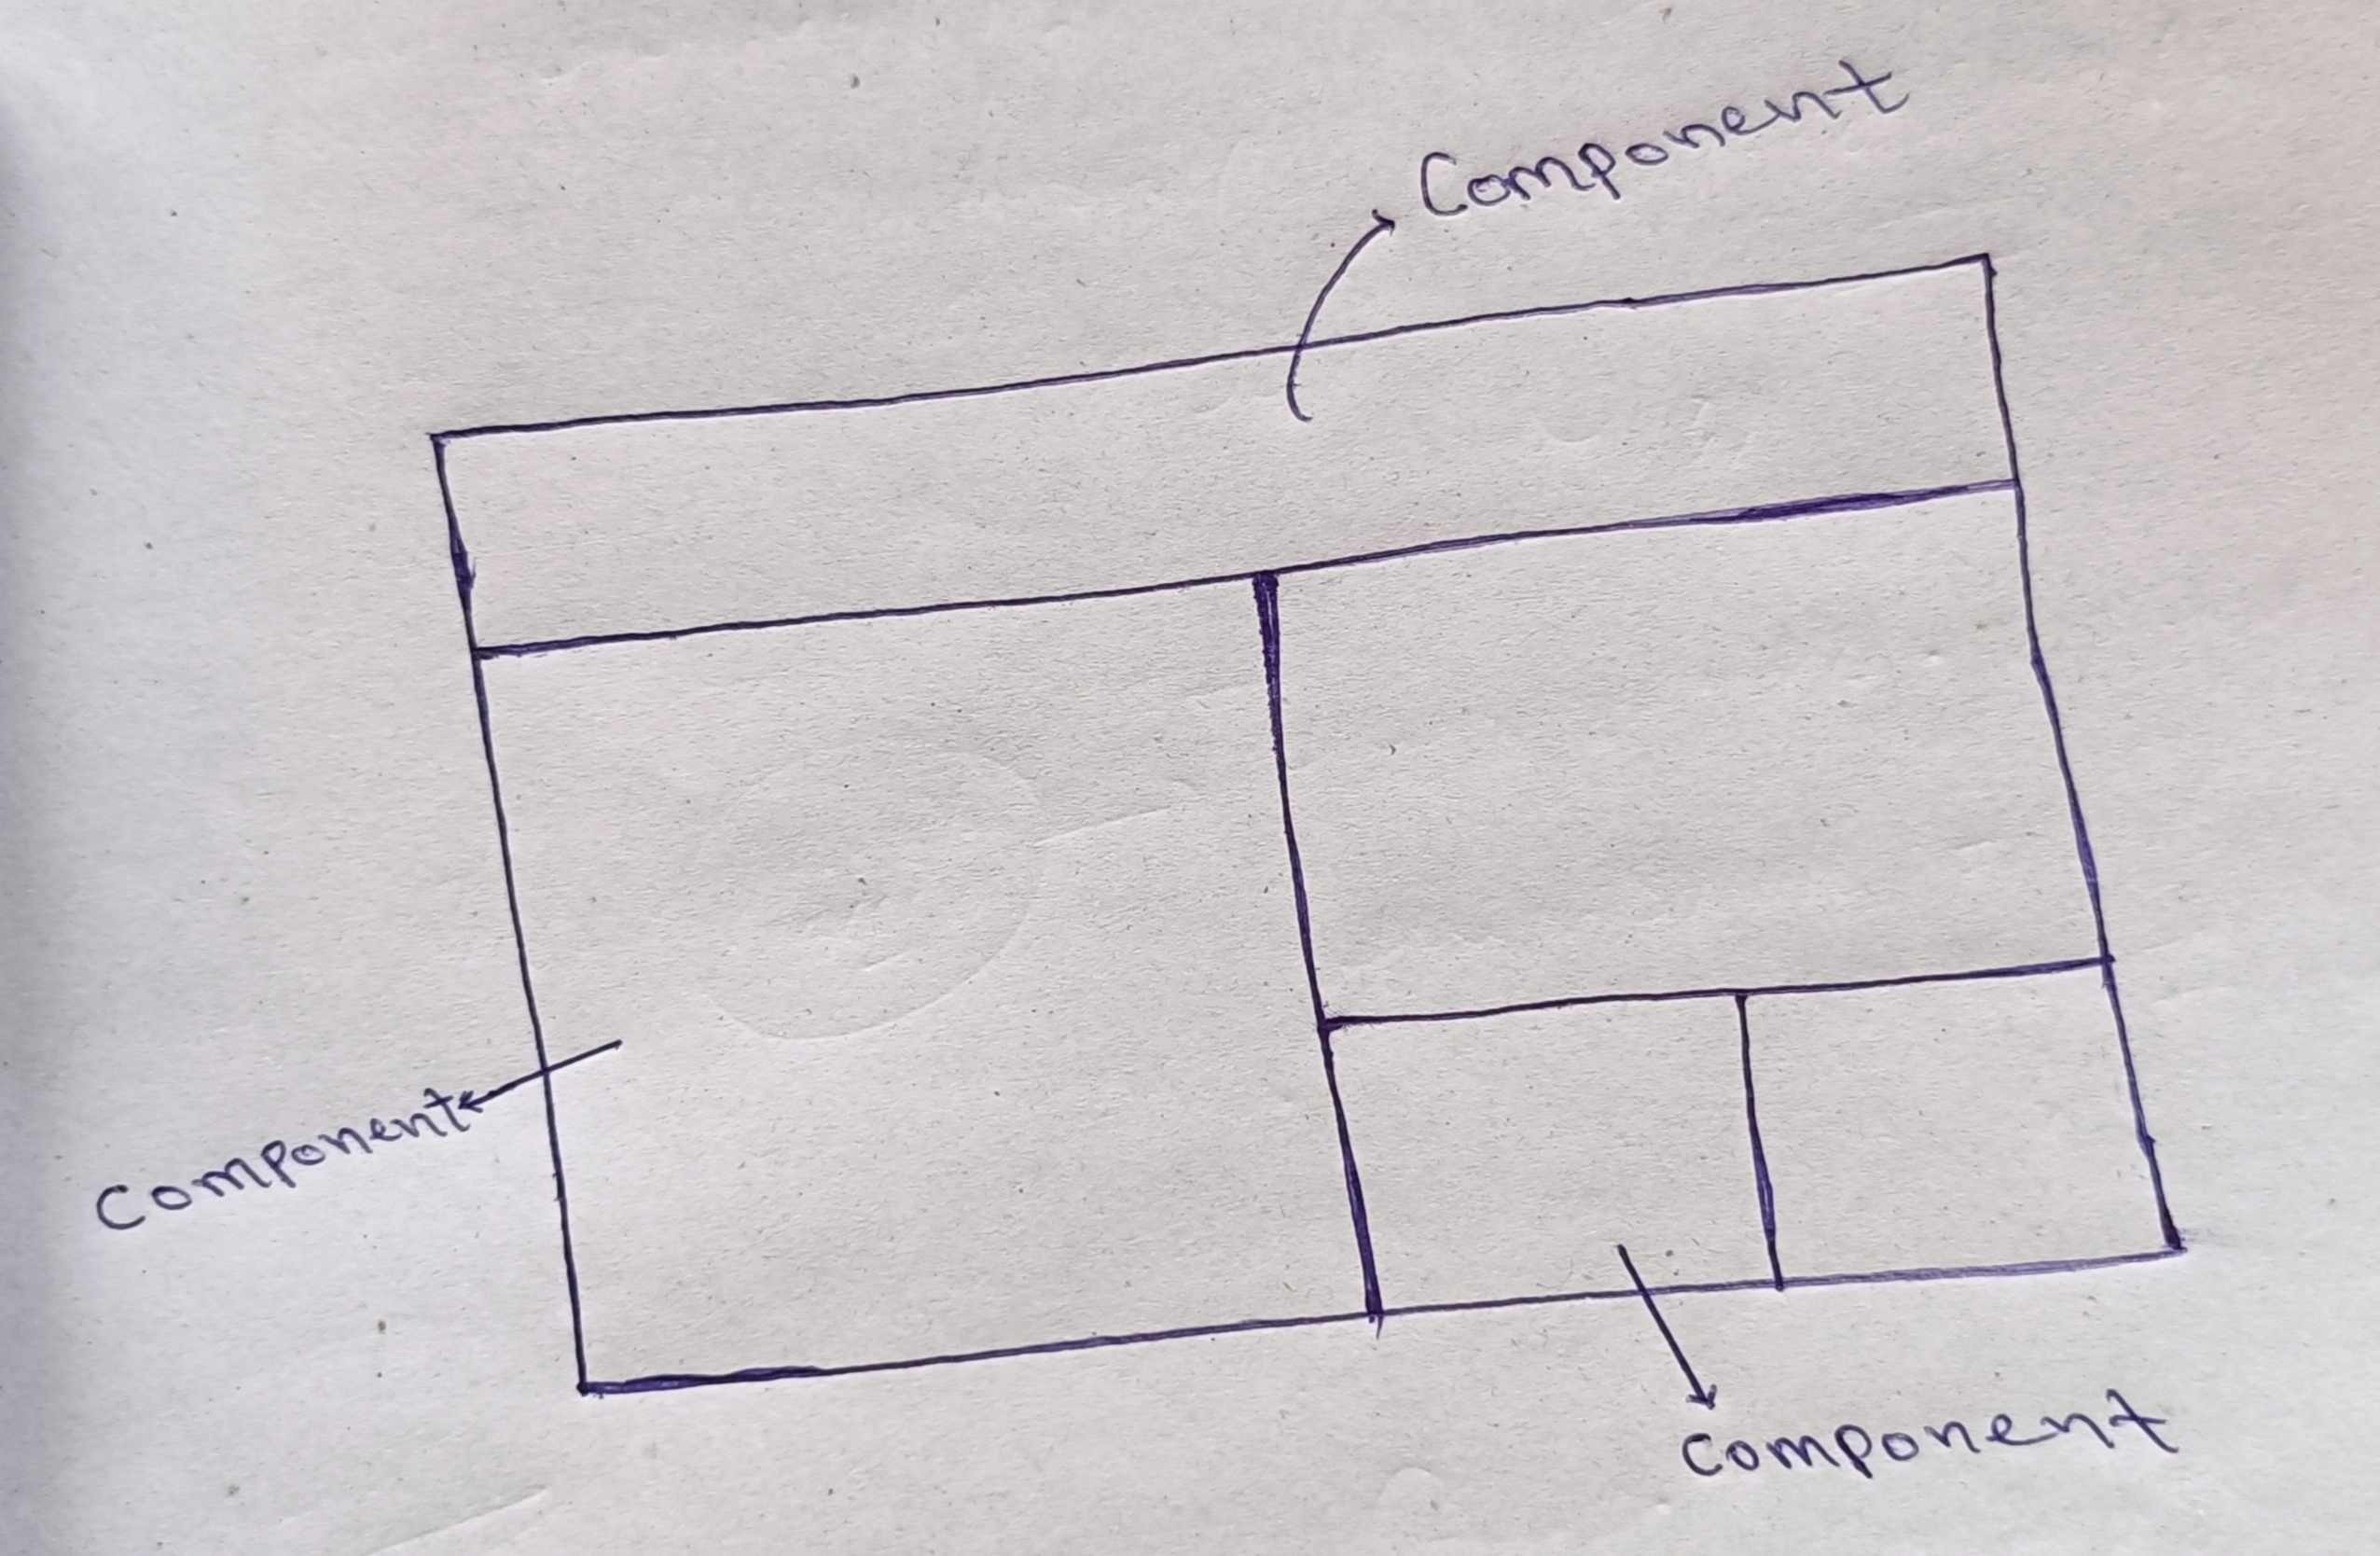 Component
Component
Component